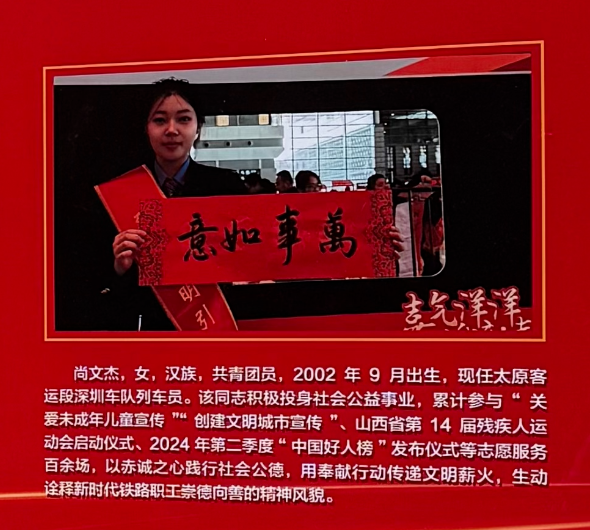 萬事如意
明引
喜气洋洋
尚文杰，女，汉族，共青团员，2002 年 9 月出生，现任太原客
运段深圳车队列车员。该同志积极投身社会公益事业，累计参与“ 关
爱未成年儿童宣传 ”“ 创建文明城市宣传 ”、山西省第 14 届残疾人运
动会启动仪式、2024 年第二季度“ 中国好人榜 ”发布仪式等志愿服务
百余场，以赤诚之心践行社会公德，用奉献行动传递文明薪火，生动
诠释新时代铁路职工崇德向善的精神风貌。